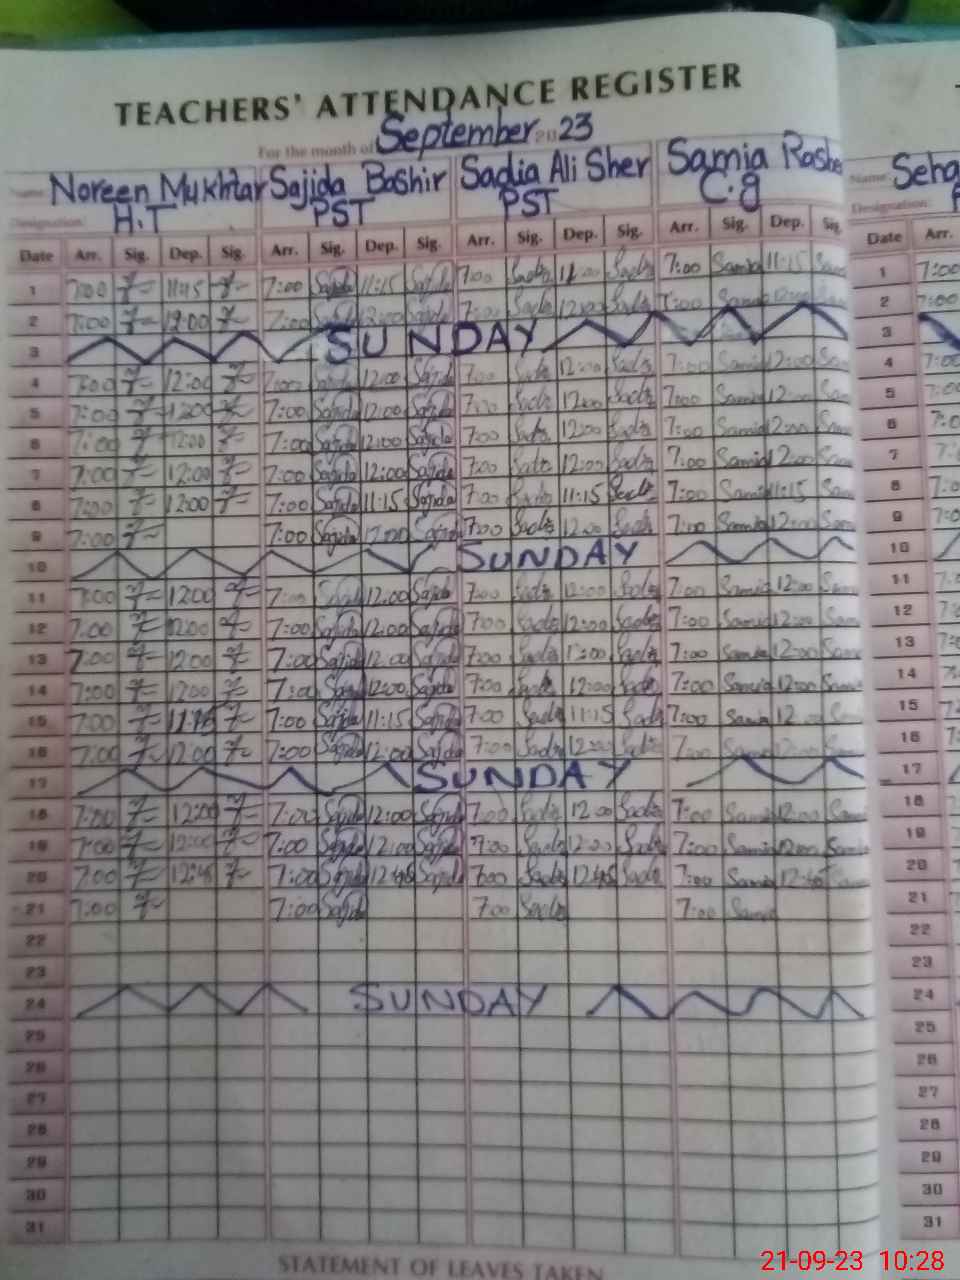 TEACHERS' ATTENDANCE REGISTER
For the month of September 2023
Name: Noreen Mukhtar Sajida Bashir Sadia Ali Sher Samia Name: Seha
Designation: H.T PST PST C.g Designation:
Date Arr. Sig. Dep. Sig. Arr. Sig. Dep. Sig. Arr. Sig. Dep. Sig. Arr. Sig. Dep. Sig. Date Arr.
1 7:00 11:45 7:00 Sajida 11:15 Sajida 7:00 Sadia 7:00 Samia 11:15 1 7:00
2 7:00 12:00 7:00 Sajida 12:00 Sajida 7:00 Sadia 12:00 Sadia 7:00 Samia 12:00 2 7:00
3 SUNDAY 3
4 7:00 12:00 7:00 Sajida 12:00 Sajida 7:00 Sadia 12:00 Sadia 7:00 Samia 12:00 4 7:00
5 7:00 1200 7:00 Sajida 12:00 Sajida 7:00 Sadia 12:00 Sadia 7:00 Samia 12:00 5 7:00
6 7:00 12:00 7:00 Sajida 12:00 Sajida 7:00 Sadia 12:00 Sadia 7:00 Samia 12:00 6
7 7:00 12:00 7:00 Sajida 12:00 Sajida 7:00 Sadia 12:00 Sadia 7:00 Samia 12:00 7
8 7:00 12:00 7:00 Sajida 11:15 Sajida 7:00 Sadia 11:15 Sadia 7:00 Samia 11:15 8
9 7:00 7:00 Sajida 12:00 Sajida 7:00 Sadia 12:00 Sadia 7:00 Samia 12:00 9
10 SUNDAY 10
11 7:00 1200 7:00 Sajida 12:00 Sajida 7:00 Sadia 12:00 Sadia 7:00 Samia 12:00 11
12 7:00 1200 7:00 Sajida 12:00 Sajida 7:00 Sadia 12:00 Sadia 7:00 Samia 12:00 12
13 7:00 1200 7:00 Sajida 12:00 Sajida 7:00 Sadia 12:00 Sadia 7:00 Samia 12:00 13
14 7:00 1200 7:00 12:00 Sajida 7:00 Sadia 12:00 Sadia 7:00 Samia 12:00 14
15 7:00 7:00 Sajida 11:15 Sajida 7:00 Sadia 11:15 Sadia 7:00 Samia 15
16 7:00 12:00 7:00 Sajida 12:00 Sajida 7:00 Sadia 12:00 Sadia 7:00 Samia 12:00 16
17 SUNDAY 17
18 7:00 12:00 7:00 Sajida 12:00 Sajida 7:00 Sadia 12:00 Sadia 7:00 Samia 12:00 18
19 7:00 12:00 7:00 Sajida 12:00 Sajida 7:00 Sadia 12:00 Sadia 7:00 Samia 12:00 19
20 7:00 12:45 7:00 Sajida 12:45 Sajida 7:00 Sadia 12:45 Sadia 7:00 Samia 12:45 20
21 7:00 7:00 Sajida 7:00 Sadia 7:00 Samia 21
22 22
23 23
24 SUNDAY 24
25 25
26 26
27 27
28 28
29 29
30 30
31 31
STATEMENT OF LEAVES TAKEN
21-09-23 10:28